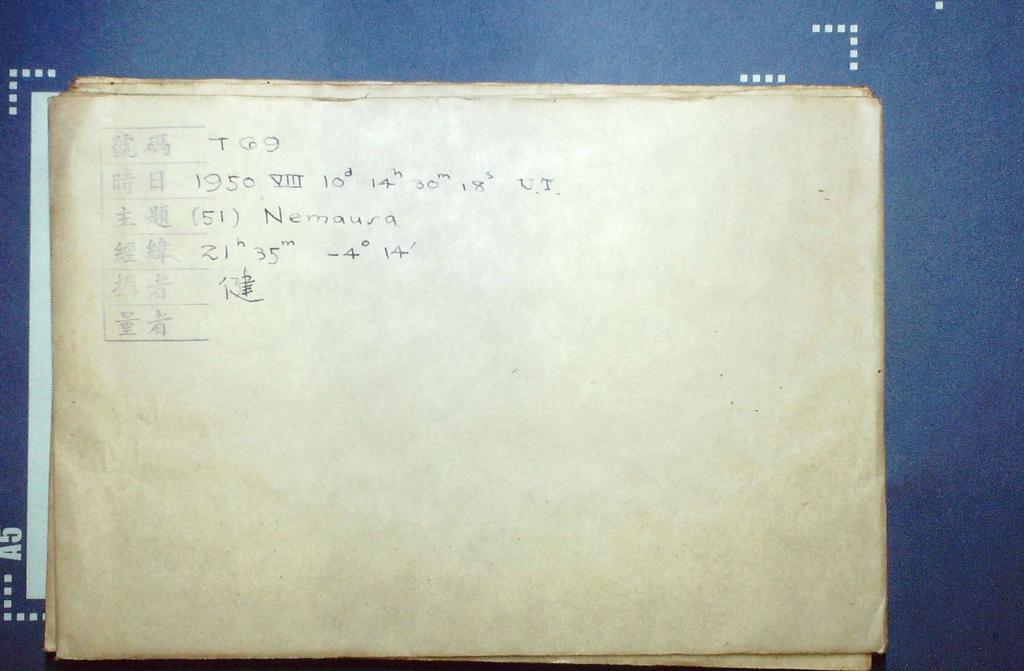 號碼 T69
時日 1950 VIII 10ᵈ 14ʰ 30ᵐ 18ˢ U.T.
主題 (51) Nemausa
經緯 21ʰ 35ᵐ -4° 14′
攝者 健
量者
A5